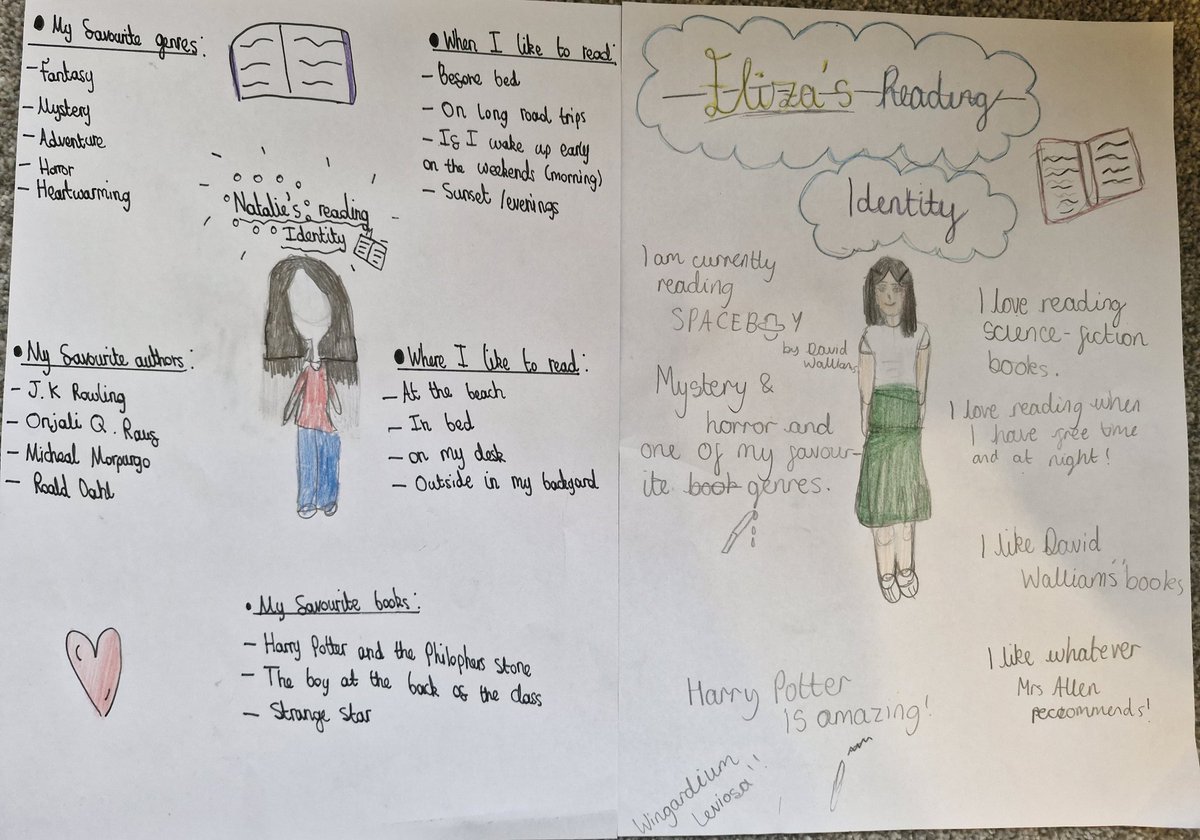 • My favourite genres:
- Fantasy
- Mystery
- Adventure
- Horror
- Heartwarming
• When I like to read:
- Before bed
- On long road trips
- If I wake up early
on the weekends (morning)
- Sunset /evenings
Natalie's reading
Identity
• My favourite authors:
- J.K Rowling
- Onjali Q. Rauf
- Micheal Morpurgo
- Roald Dahl
• Where I like to read:
- At the beach
- In bed
- on my desk
- Outside in my backyard
• My favourite books:
- Harry Potter and the Philophers stone
- The boy at the back of the class
- Strange star
Eliza's Reading
Identity
I am currently
reading
SPACEBOY
by David
Walliams
Mystery &
horror and
one of my favour-
ite book genres.
I love reading
science-fiction
books.
I love reading when
I have free time
and at night!
I like David
Walliams' books
I like whatever
Mrs Allen
reccommends!
Harry Potter
is amazing!
Wingardium
Leviosa!!